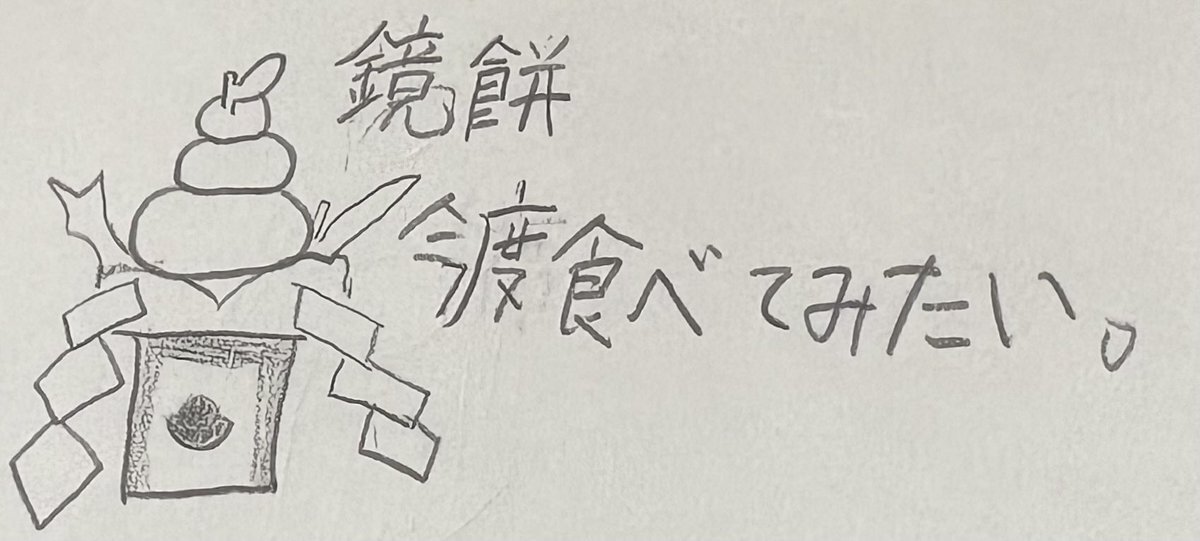 鏡餅
今度食べてみたい。